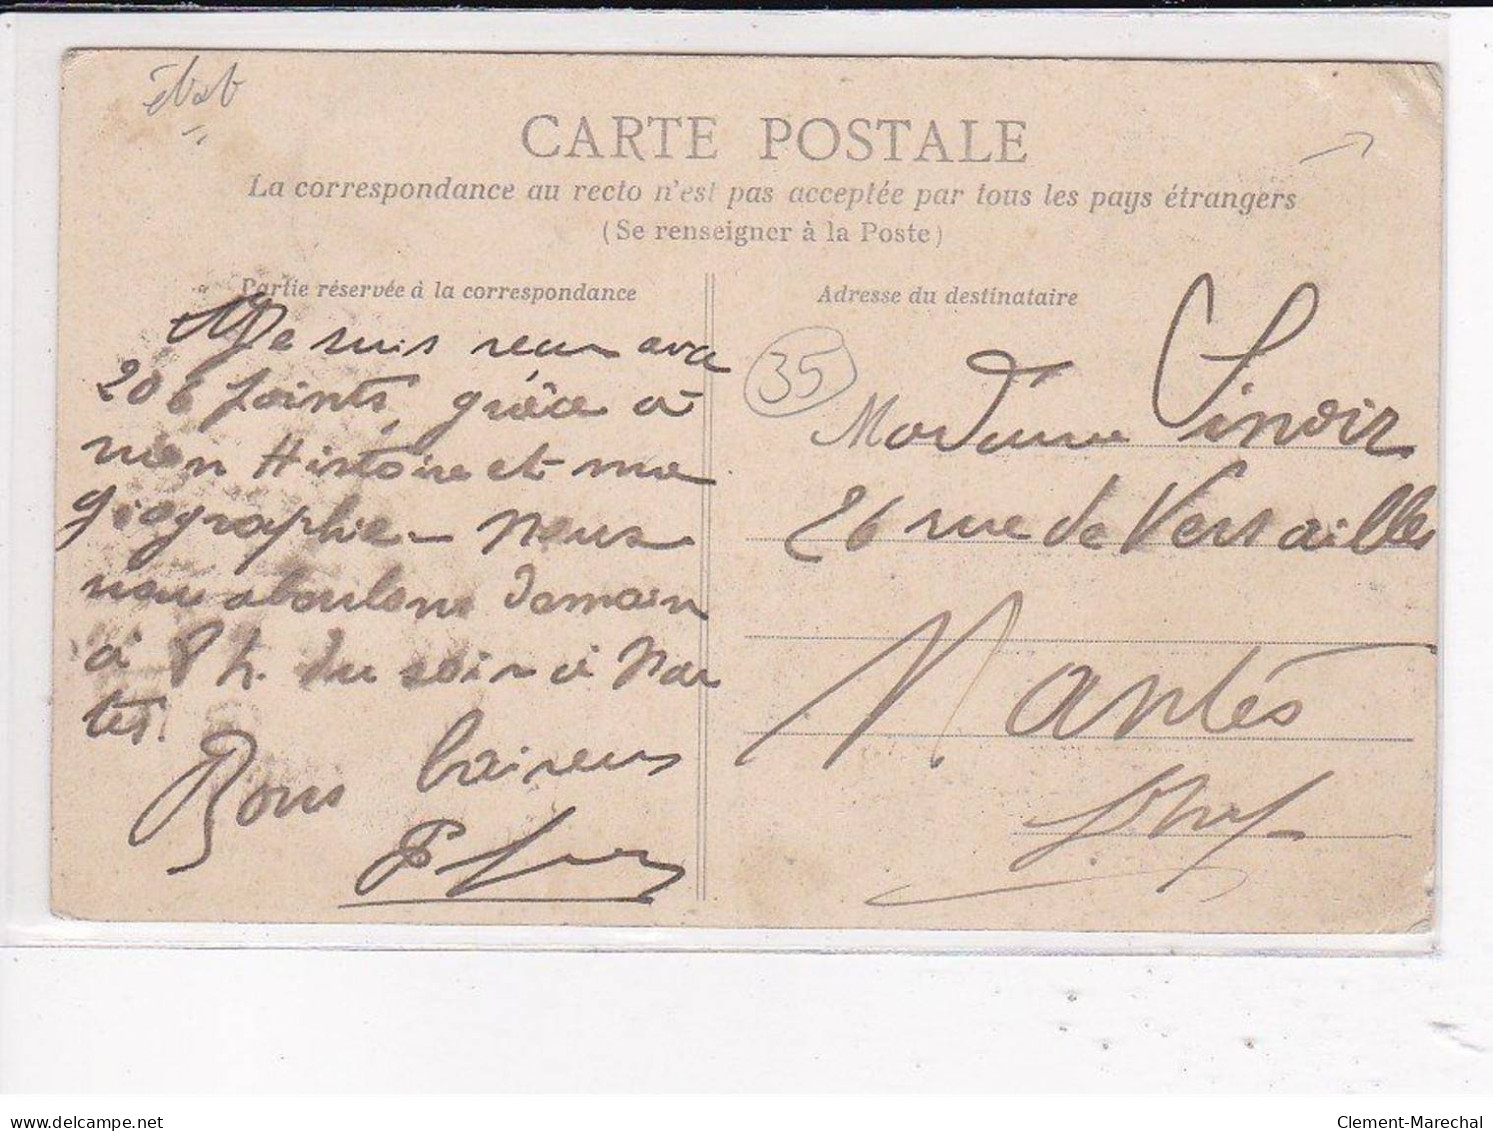 état
CARTE POSTALE
La correspondance au recto n'est pas acceptée par tous les pays étrangers
(Se renseigner à la Poste)
Partie réservée à la correspondance
Adresse du destinataire
Je suis reçu avec
206 points, grâce à
mon Histoire et ma
géographie - Nous
nous aboulons demain
à 8 h. du soir à Nan
tes.
Bons baisers
35
Madame Sinoir
26 rue de Versailles
Nantes
delcampe.net
Clement-Marechal